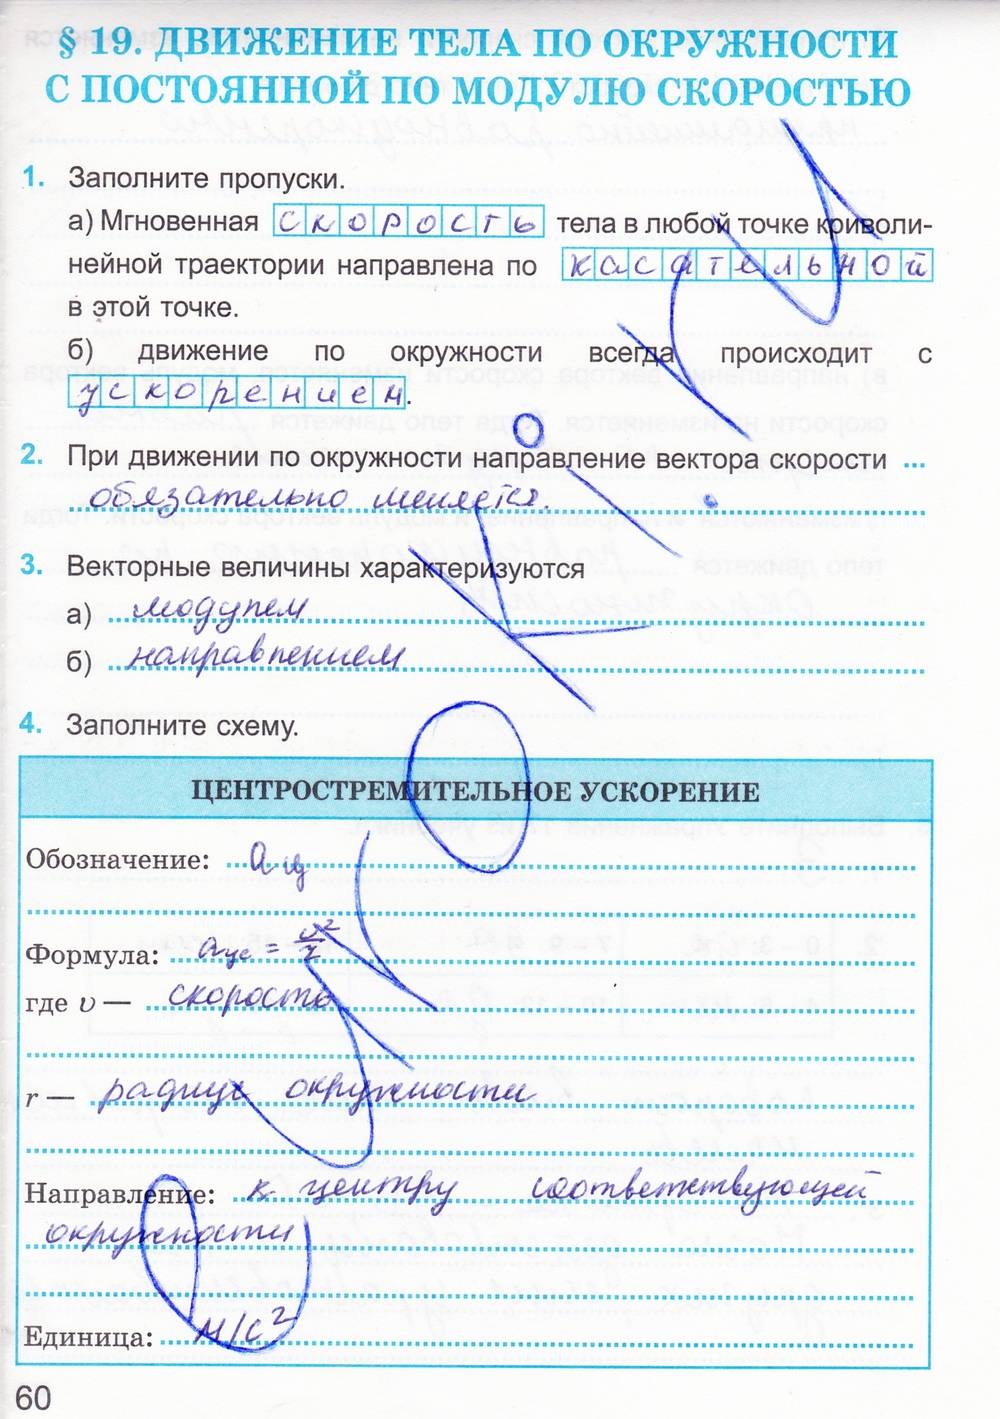 § 19. ДВИЖЕНИЕ ТЕЛА ПО ОКРУЖНОСТИ
С ПОСТОЯННОЙ ПО МОДУЛЮ СКОРОСТЬЮ
1. Заполните пропуски.
а) Мгновенная скорость тела в любой точке криволи-
нейной траектории направлена по касательной
в этой точке.
б) движение по окружности всегда происходит с
ускорением.
2. При движении по окружности направление вектора скорости ...
обязательно меняется.
3. Векторные величины характеризуются
а) модулем
б) направлением
4. Заполните схему.
ЦЕНТРОСТРЕМИТЕЛЬНОЕ УСКОРЕНИЕ
Обозначение: aц
Формула: aцс = υ²/r
где υ — скорость
r — радиус окружности
Направление: к центру соответствующей
окружности
Единица: м/с²
60